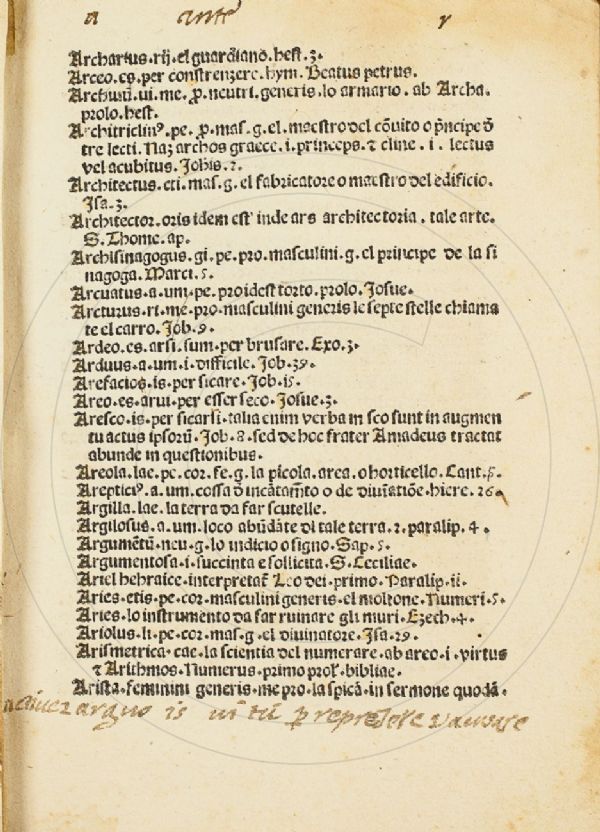 a ante r
Archarius. rij. el guardiano. hest. 3.
Arceo. es. per constrenzere. hym. Beatus petrus.
Archiuũ. ui. me. p̱. neutri. generis. lo armario. ab Archa.
prolo. hest.
Architriclinꝰ. pe. p̱. mas. g. el. maestro del cõuito o pñcipe õ
tre lecti. Naz archos graece. i. princeps. ⁊ cline. i. lectus
vel acubitus. Johis. 2.
Architectus. cti. mas. g. el fabricatore o maestro del edificio.
Isa. 3.
Architector. oris idem est inde ars architectoria. tale arte.
S. Thome. ap.
Archisinagogus. gi. pe. pro. masculini. g. el principe de la si
nagoga. Marci. 5.
Arcuatus. a. um. pe. pro idest torto. prolo. Josue.
Arcturus. ri. me. pro. masculini generis le septe stelle chiama
te el carro. Job. 9.
Ardeo. es. arsi. sum. per brusare. Exo. 3.
Arduus. a. um. i. difficile. Job. 39.
Arefacio. is. per sicare. Job. 15.
Areo. es. arui. per esser seco. Josue. 3.
Aresco. is. per sicarsi. talia enim verba in sco sunt in augmen
tu actus ipsorũ. Job. 8. sed de hoc frater Amadeus tractat
abunde in questionibus.
Areola. lae. pe. cor. fe. g. la picola. area. o horticello. Cant.
Arepticiꝰ. a. um. cossa õ incãtam̃to o de diuinatiõe. hiere. 26.
Argilla. lae. la terra da far scutelle.
Argilosus. a. um. loco abũdãte di tale terra. 2. paralip. 4.
Argumẽtũ. neu. g. lo indicio o signo. Sap. 5.
Argumentosa. i. succinta e sollicita. S. Ceciliae.
Ariel hebraice. interpretat̃ Leo dei. primo. Paralip. ii.
Aries. etis. pe. cor. masculini generis. el moltone. Numeri. 5.
Aries. lo instrumento da far ruinare gli muri. Ezech. 4.
Ariolus. li. pe. cor. mas. g. el diuinatore. Isa. 29.
Arismetrica. cae. la scientia del numerare. ab areo. i. virtus
⁊ Arithmos. Numerus. primo prol̃. bibliae.
Arista. feminini generis. me pro. la spica. in sermone quodã.
arguo is ui tũ p̱ represere